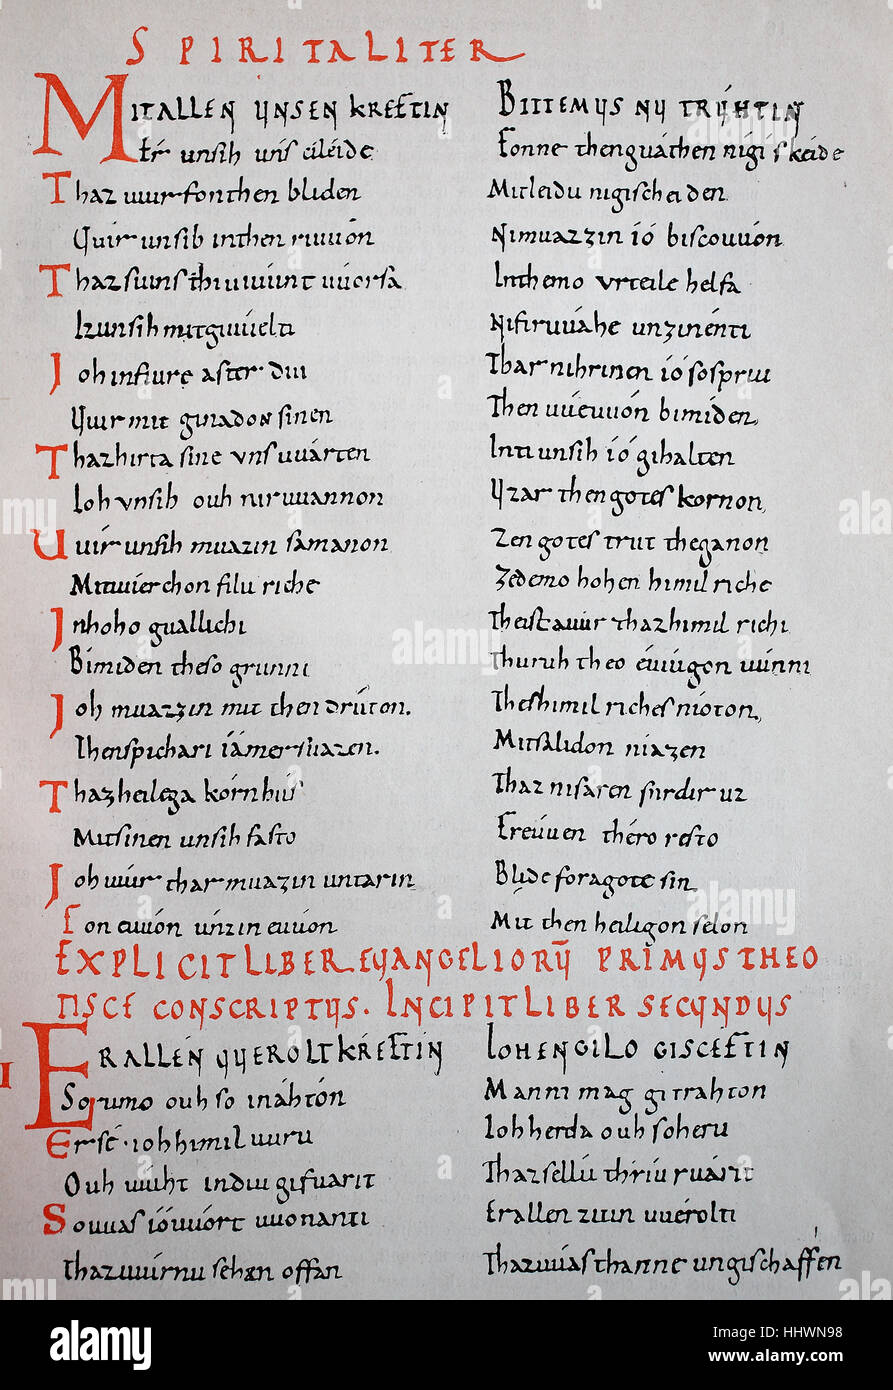 SPIRITALITER
MITALLEN UNSEN KREFTIN BITTEMUS NU TRUHTIN
Er unsih uns eileide Fonne thenguáthen nigiskeide
Thaz uuir fonthen bliden Mitleidu nigischeiden
Uuir unsih inthen riuuon Nimuazzin ió biscouuón
Thaz suins thiu uuiunt uuorfa Inthemo urteile helfa
Izunsih nitgiuuelti Nifiruuahe unzinenti
Joh infiure after diu Thar nihrinen ió so spriu
Uuir mit ginadon sinen Then uueuuón bimiden,
Thaz hirta sine uns uuárten Inti unsih ió gihalten
Ioh unsih ouh niruuannon Uzar then gotes kornon,
Uuir unsih muazin samanon Zen gotes trut theganon
Mit uuerchon filu riche Zedemo hohen himilriche
Inhoho guallichi Theist auur thaz himilrichi
Bimiden theso grunni Thuruh theo éuuigon uuinni
Joh muazzin mit then drúton. Thes himilriches nioton,
Then spichari iamer niazen. Mit salidon niazen
Thaz heilega kornhus Thaz nifaren furdir uz
Mit sinen unsih fasto Freuuen théro resto
Joh uuir thar muazin untarin Blide foragote sin,
Fon euuón unzin euuon Mit then heiligon selon
EXPLICIT LIBER EUANGELIORŪ PRIMUS THEO
TISCE CONSCRIPTUS. INCIPIT LIBER SECUNDUS
I ERALLEN UUEROLTKREFTIN IOH ENGILO GISCEFTIN
So rumo ouh soináhtón Manni mag gitrahton
Er sé ioh himil uuru Ioh herda ouh so heru
Ouh uuiht indiu gifuarit Thaz sellu thriu ruarit
So uuas ió uuort uuonanti Erallen ziuin uuérolti
Thaz uuirnu sehen offan Thaz uuas thanne ungiscaffén
alamy
Image ID: HHWN98
www.alamy.com